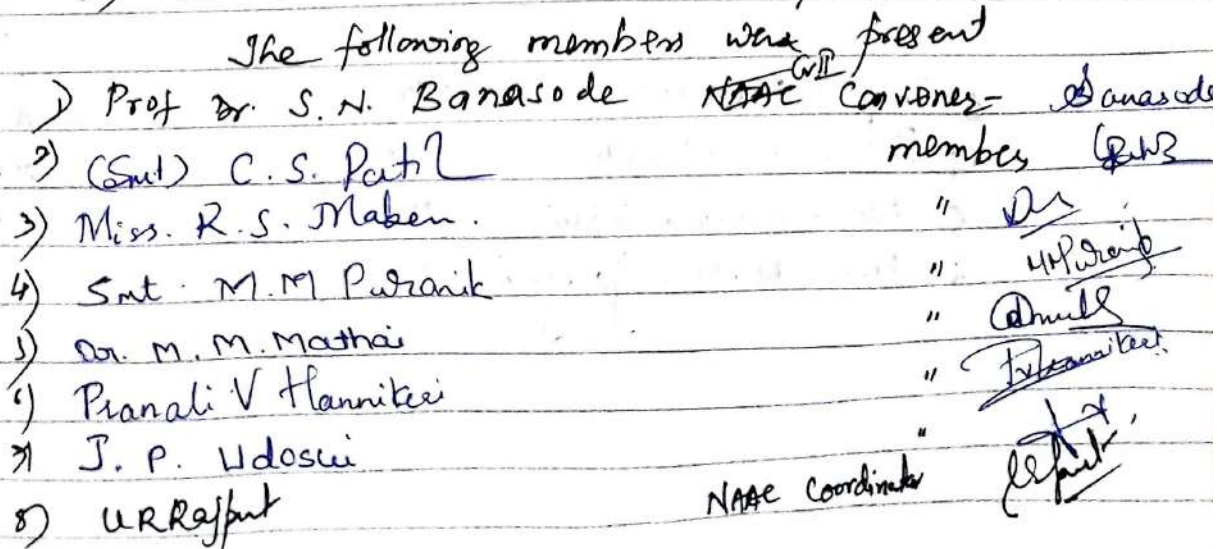 The following members were present
1) Prof Dr. S. N. Banasode NAAC Cr II Convener - Banasode
2) (Smt) C. S. Patil member
3) Miss. R. S. Maben. "
4) Smt. M. M Puranik " MMPuranik
5) Dr. M. M. Mathai "
6) Pranali V Hannikeri " PVHannikeri
7) J. P. Udoswi "
8) URRajput NAAC Coordinator